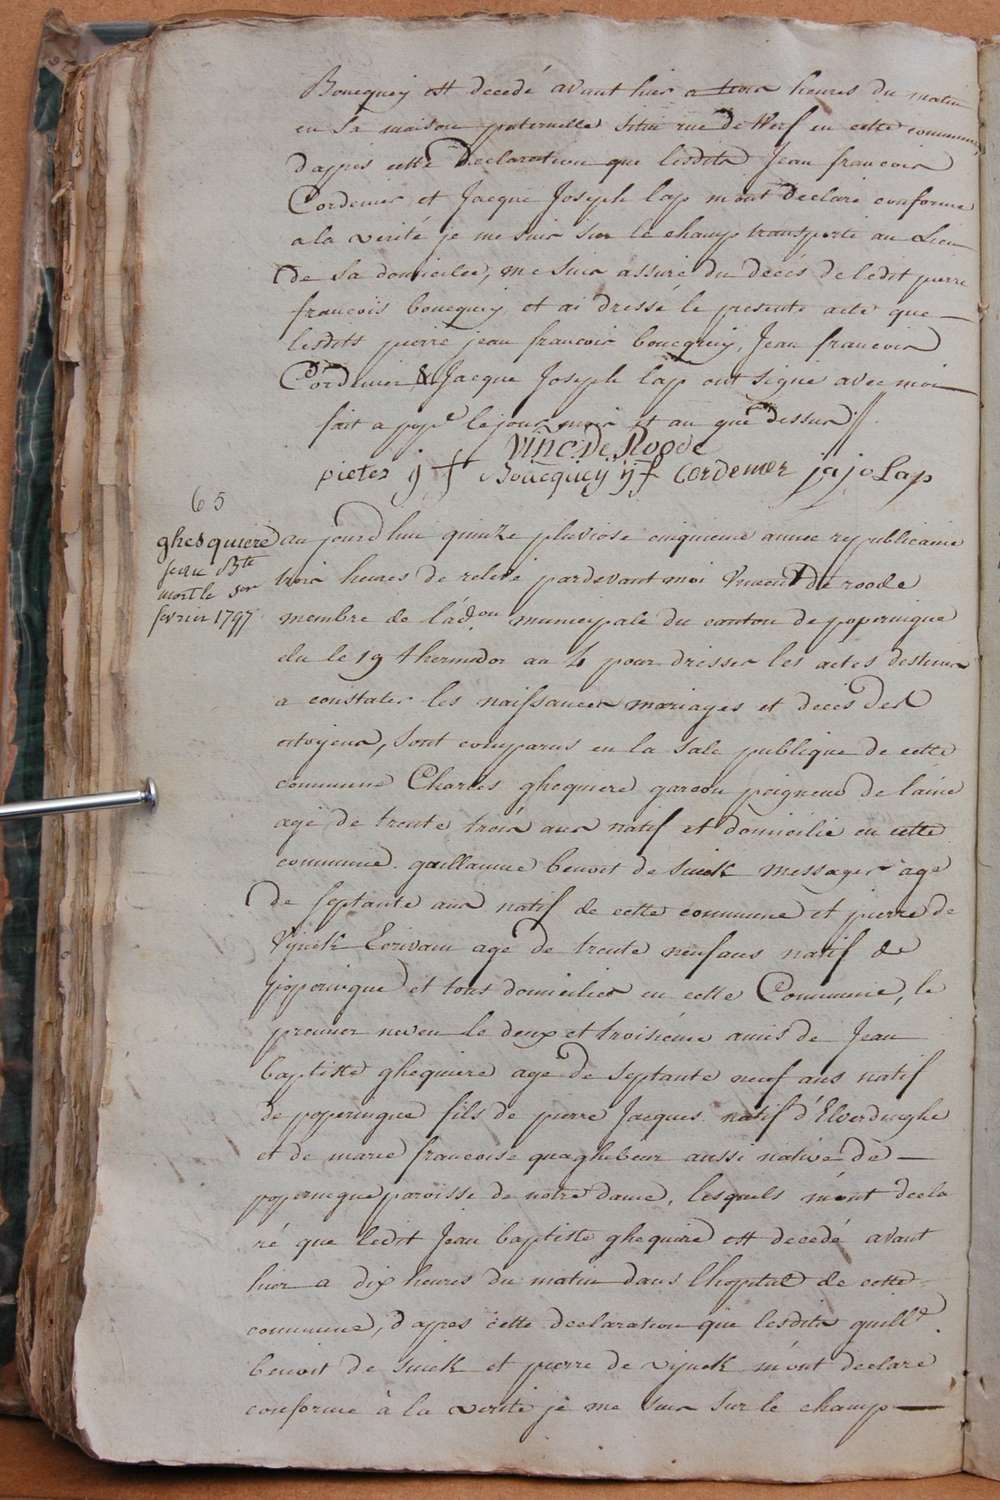 Boucquey est decedé avant hier a trois heures du matin
en sa maison paternelle situé rue de Werf en cette commune,
d'apres cette declaration que lesdits Jean francois
Cordemer et Jacque Joseph Lap m'ont declaré conforme
a la verité je me suis sur le champ transporté au Lieu
de sa domicilee, me suis assuré du decés de ledit pierre
francois boucquey et ai dressé le presente acte que
lesdits pierre jean francois boucquey, Jean francois
Cordemer & Jacque Joseph Lap ont signé avec moi
fait a pope le jour mois et an que dessus
Vinc: De Roode
pieter j f Boucquey j f cordemer ja jo Lap
65
ghesquiere
jean Bte
mort le 1er
fevrier 1797
au jourd'hui quinze pluviose cinquieme année republicaine
trois heures de relevé pardevant moi Vincent de roode
membre de l'adon municipale du canton de poperingue
elu le 19 thermidor an 4 pour dresser les actes destinés
a constater les naissances mariages et decés des
citoyens, sont comparus en la sale publique de cette
commune Charles ghequiere garcon peigneur de laine
agé de trente trois ans natif et domicilie en cette
commune. guillaume benoit de Snick messager agé
de septante ans natif de cette commune et pierre de
Vijnck Ecrivain agé de trente neuf ans natif de
poperingue et tous domicilies en cette Commune, le
premier neveu le deux et troisieme amis de Jean
baptiste ghequiere agé de septante neuf ans natif
de poperingue fils de pierre Jacques natif d'Elverdinghe
et de marie francoise quaghebeur aussi native de
poperingue paroisse de notre dame, lesquels m'ont decla
ré que ledit Jean baptiste ghequiere est decedé avant
hier a dix heures du matin dans l'hopital de cette
commune, d'apres cette declaration que lesdits guille
benoit de snick et pierre de vijnck m'ont declaré
conforme à la verité je me suis sur le champ